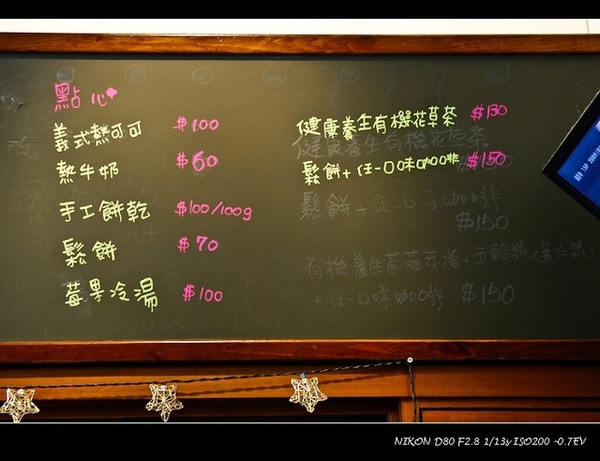 點心
義式熱可可 $100
熱牛奶 $60
手工餅乾 $100/100g
鬆餅 $70
莓果冷湯 $100
健康養生有機花草茶 $130
鬆餅+任一口味咖啡 $150
健康養生有機花草茶
鬆餅+任一口味咖啡
$150
有機養生
+任一口味咖啡 $150
NIKON D80 F2.8 1/13s ISO200 -0.7EV